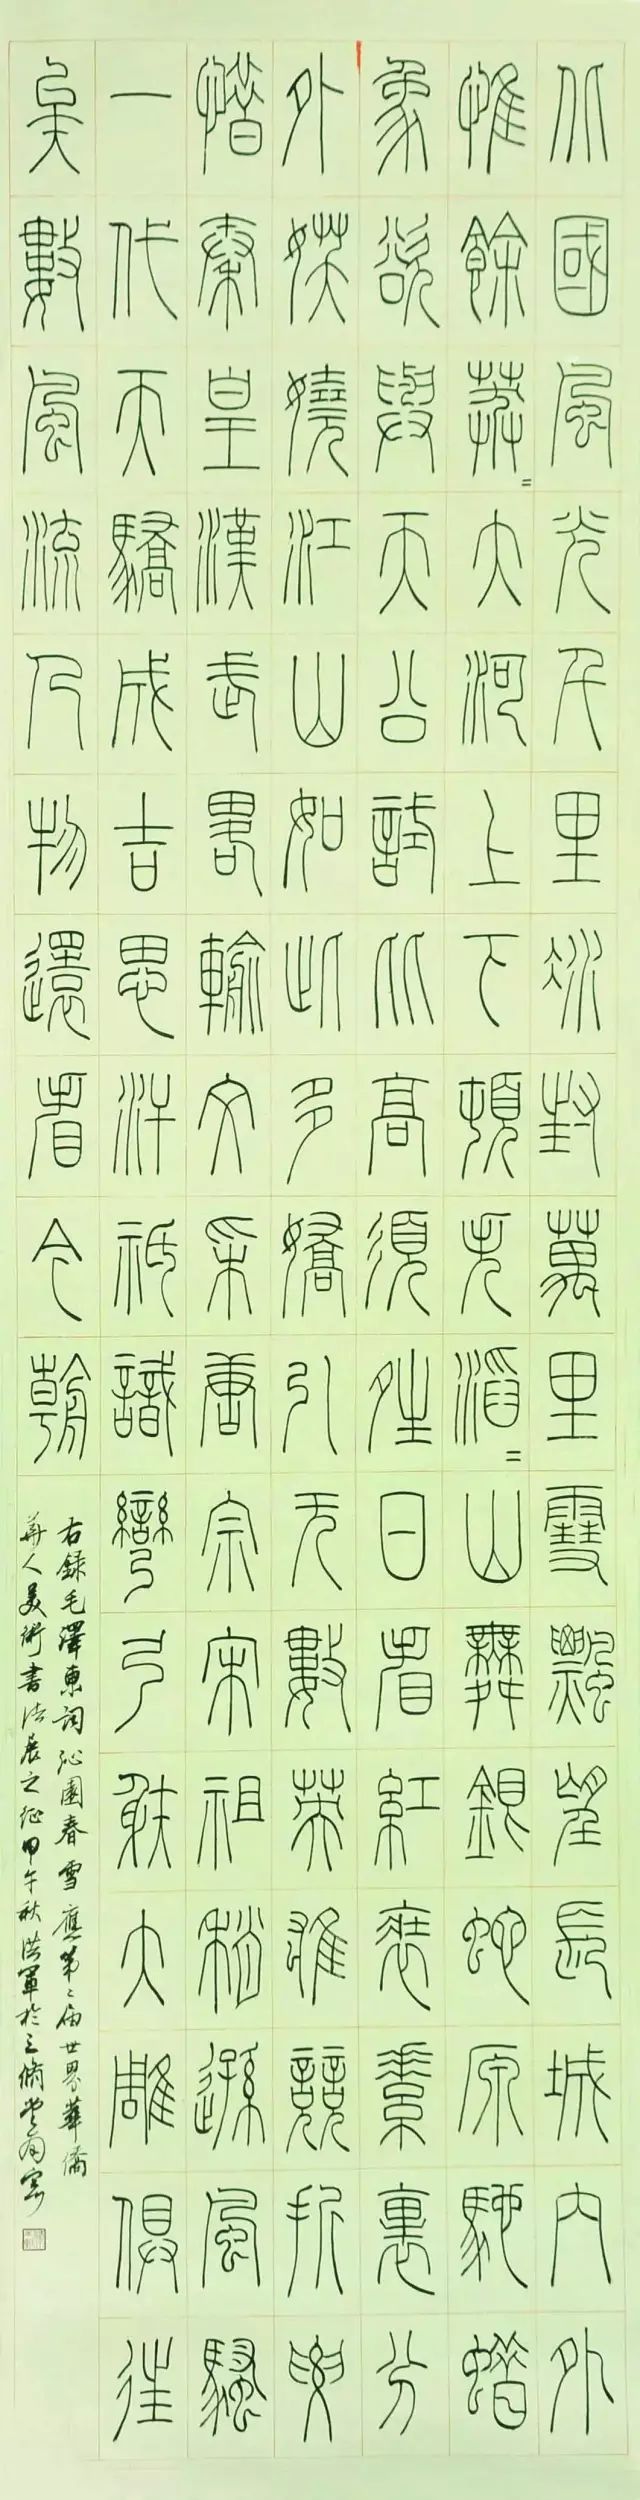 北國風光千里冰封萬里雪飄望長城內外
惟餘莽=大河上下頓失滔=山舞銀蛇原馳蠟
象欲與天公試比高須夝日看紅裝素裹分
外妖嬈江山如此多嬌引无數英雄競折要
惜秦皇漢武略輸文采唐宗宋祖稍遜風騷
一代天驕成吉思汗祇識彎弓射大雕俱往
矣數風流人物還看今朝
右錄毛澤東詞沁園春雪應第二屆世界華僑
華人美術書法展之征甲午秋洪軍於三脩堂南窗